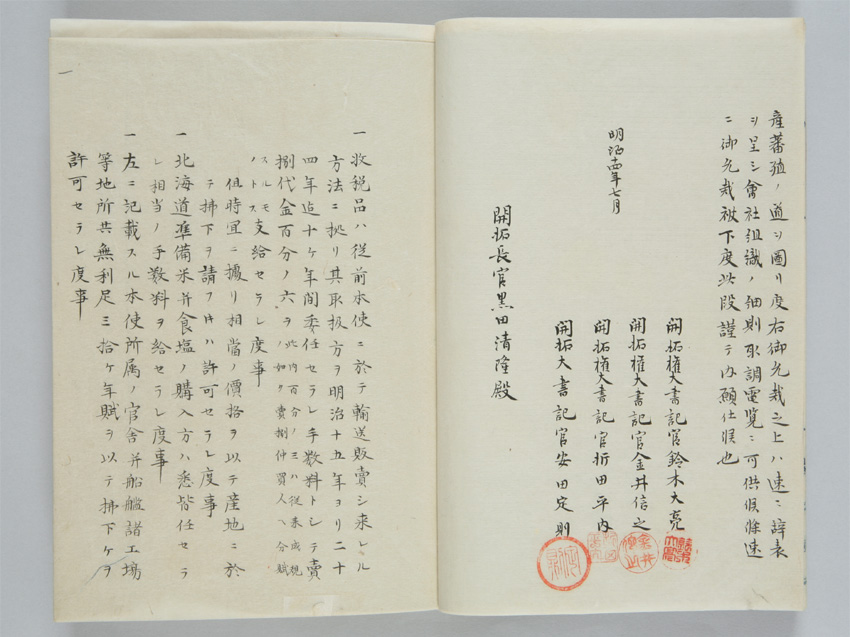 産蕃殖ノ道ヲ圖リ度右御允裁之上ハ速ニ辞表
ヲ呈シ會社組織ノ細則取調電覧ニ可供候條速
ニ御允裁被下度此段謹テ内願仕候也
明治十四年七月
開拓權大書記官鈴木大亮
開拓權大書記官金井信之
開拓權大書記官折田平内
開拓大書記官安田定則
開拓長官黒田清隆殿
一收税品ハ従前本使ニ於テ輸送販賣シ来レル
方法ニ拠リ其取扱方ヲ明治十五年ヨリ二十
四年迄十ケ年間委任セラレ手数料トシテ賣
捌代金百分ノ六ヲ此内百分ノ三ハ従来成規ノ如ク賣捌仲買人ヘ分賦
スルモノトス支給セラレ度事
但時宜ニ據リ相當ノ價格ヲ以テ産地ニ於
テ拂下ヲ請フ时ハ許可セラレ度事
一北海道準備米并食塩ノ購入方ハ悉皆任セラ
レ相当ノ手数料ヲ給セラレ度事
一左ニ記載スル本使所属ノ官舎并船艦諸工場
等地所共無利足三拾ケ年賦ヲ以テ拂下ケヲ
許可セラレ度事